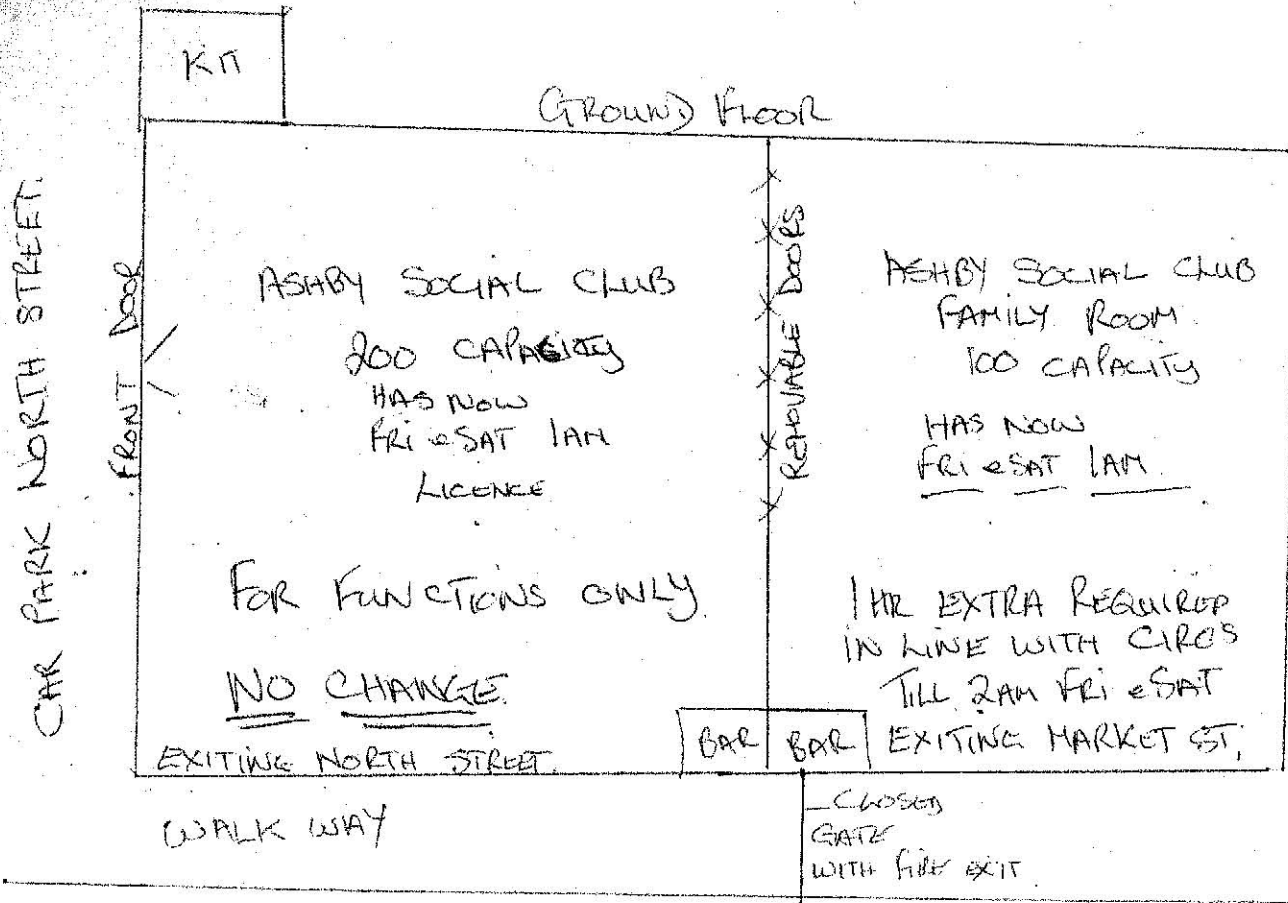 KIT
GROUND FLOOR
CAR PARK NORTH STREET.
FRONT DOOR
ASHBY SOCIAL CLUB
200 CAPACITY
HAS NOW
FRI & SAT 1AM
LICENCE
FOR FUNCTIONS ONLY
NO CHANGE
EXITING NORTH STREET.
REMOVABLE DOORS
ASHBY SOCIAL CLUB
FAMILY ROOM
100 CAPACITY
HAS NOW
FRI & SAT 1AM
1 HR EXTRA REQUIRED
IN LINE WITH CIRO'S
TILL 2AM FRI & SAT
EXITING MARKET ST.
BAR
BAR
WALK WAY
CLOSED
GATE
WITH FIRE EXIT